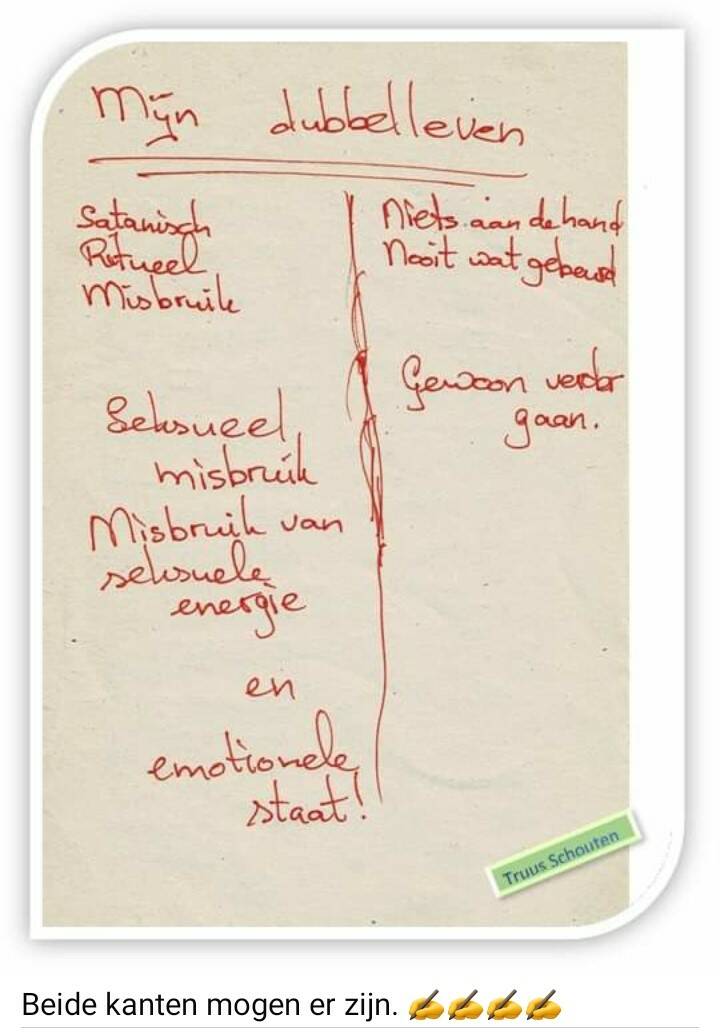 Mijn dubbelleven
Satanisch
Ritueel
Misbruik
Seksueel
misbruik
Misbruik van
seksuele
energie
en
emotionele
staat!
Niets aan de hand
Nooit wat gebeurd
Gewoon verder
gaan.
Truus Schouten
Beide kanten mogen er zijn. ✍️✍️✍️✍️